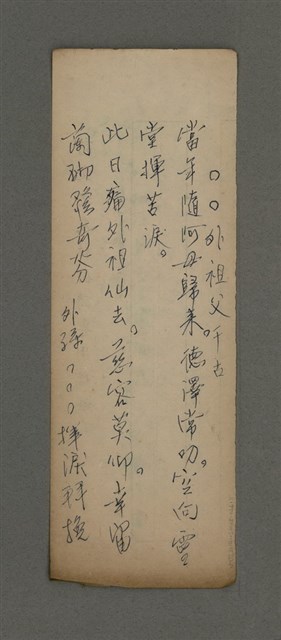 ○○外祖父千古
當年隨阿母歸来。德澤常叨。空向靈
堂揮苦淚。
此日痛外祖仙去。慈容莫仰。幸留
蘭砌發奇芬
外孫○○○揮淚拜挽